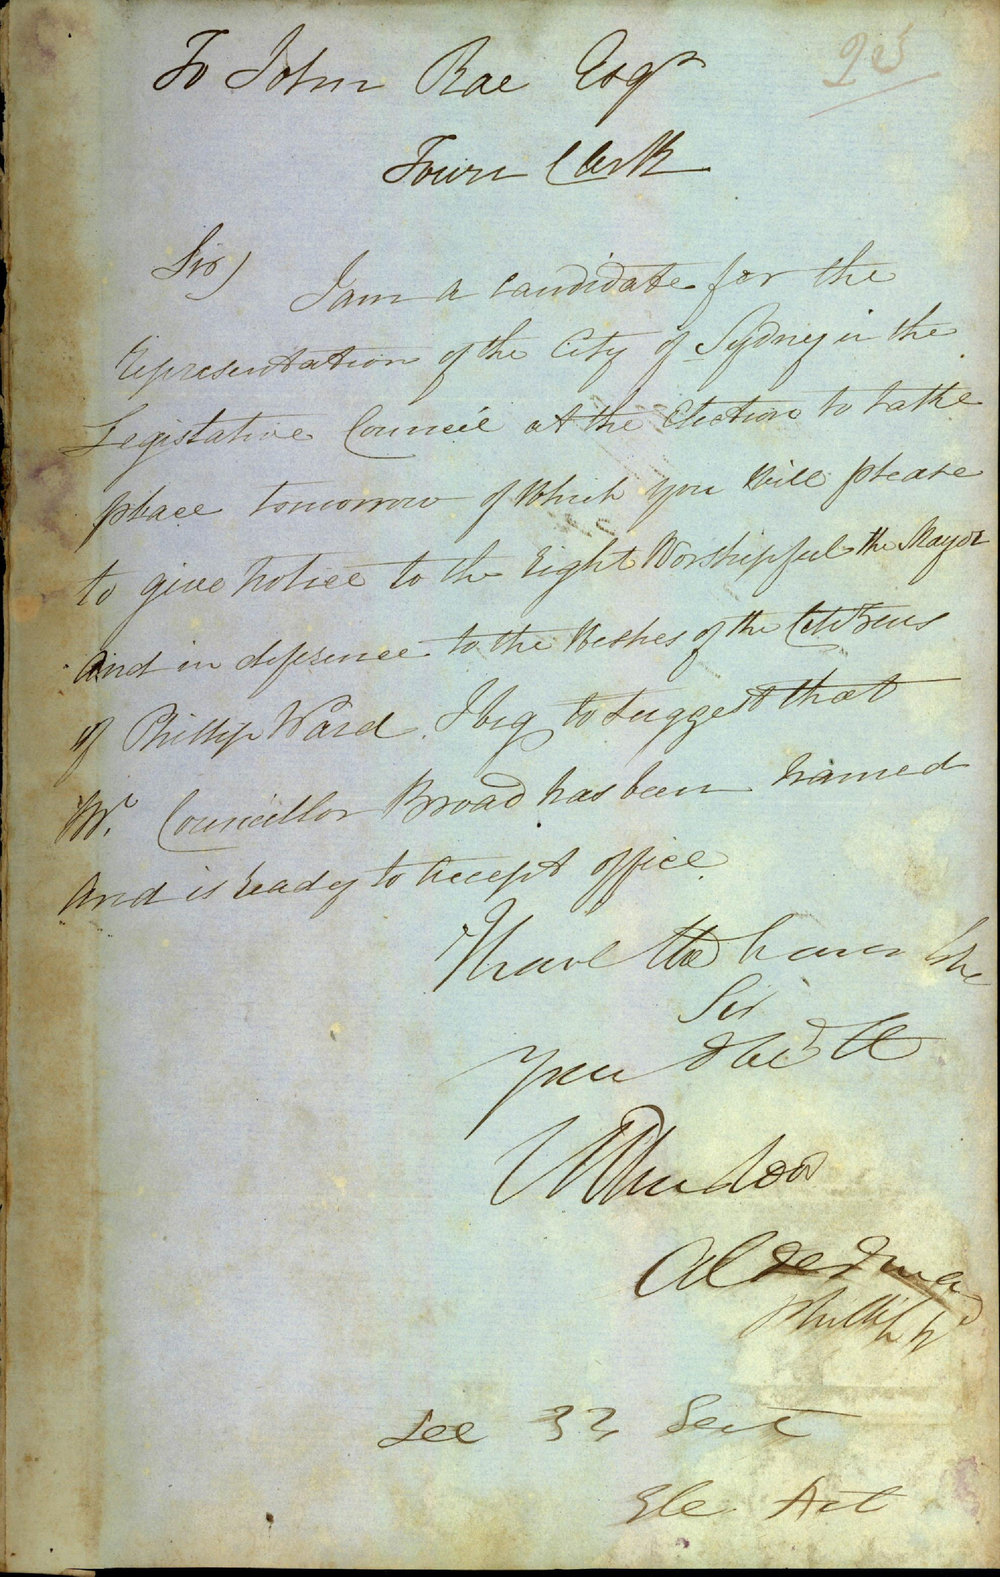 205
To John Rae Esqr
Town Clerk
Sir) I am a candidate for the
representation of the City of Sydney in the
Legislative Council at the Election to take
place tomorrow of which you will please
to give notice to the Right Worshipful the Mayor
and in deference to the Wishes of the Citizens
of Phillip Ward. I beg to suggest that
Mr. Councillor Broad has been named
and is ready to accept office
I have the honor to be
Sir
Your obedt
Alderman
Phillip W
See 32 Sect
Ele Act